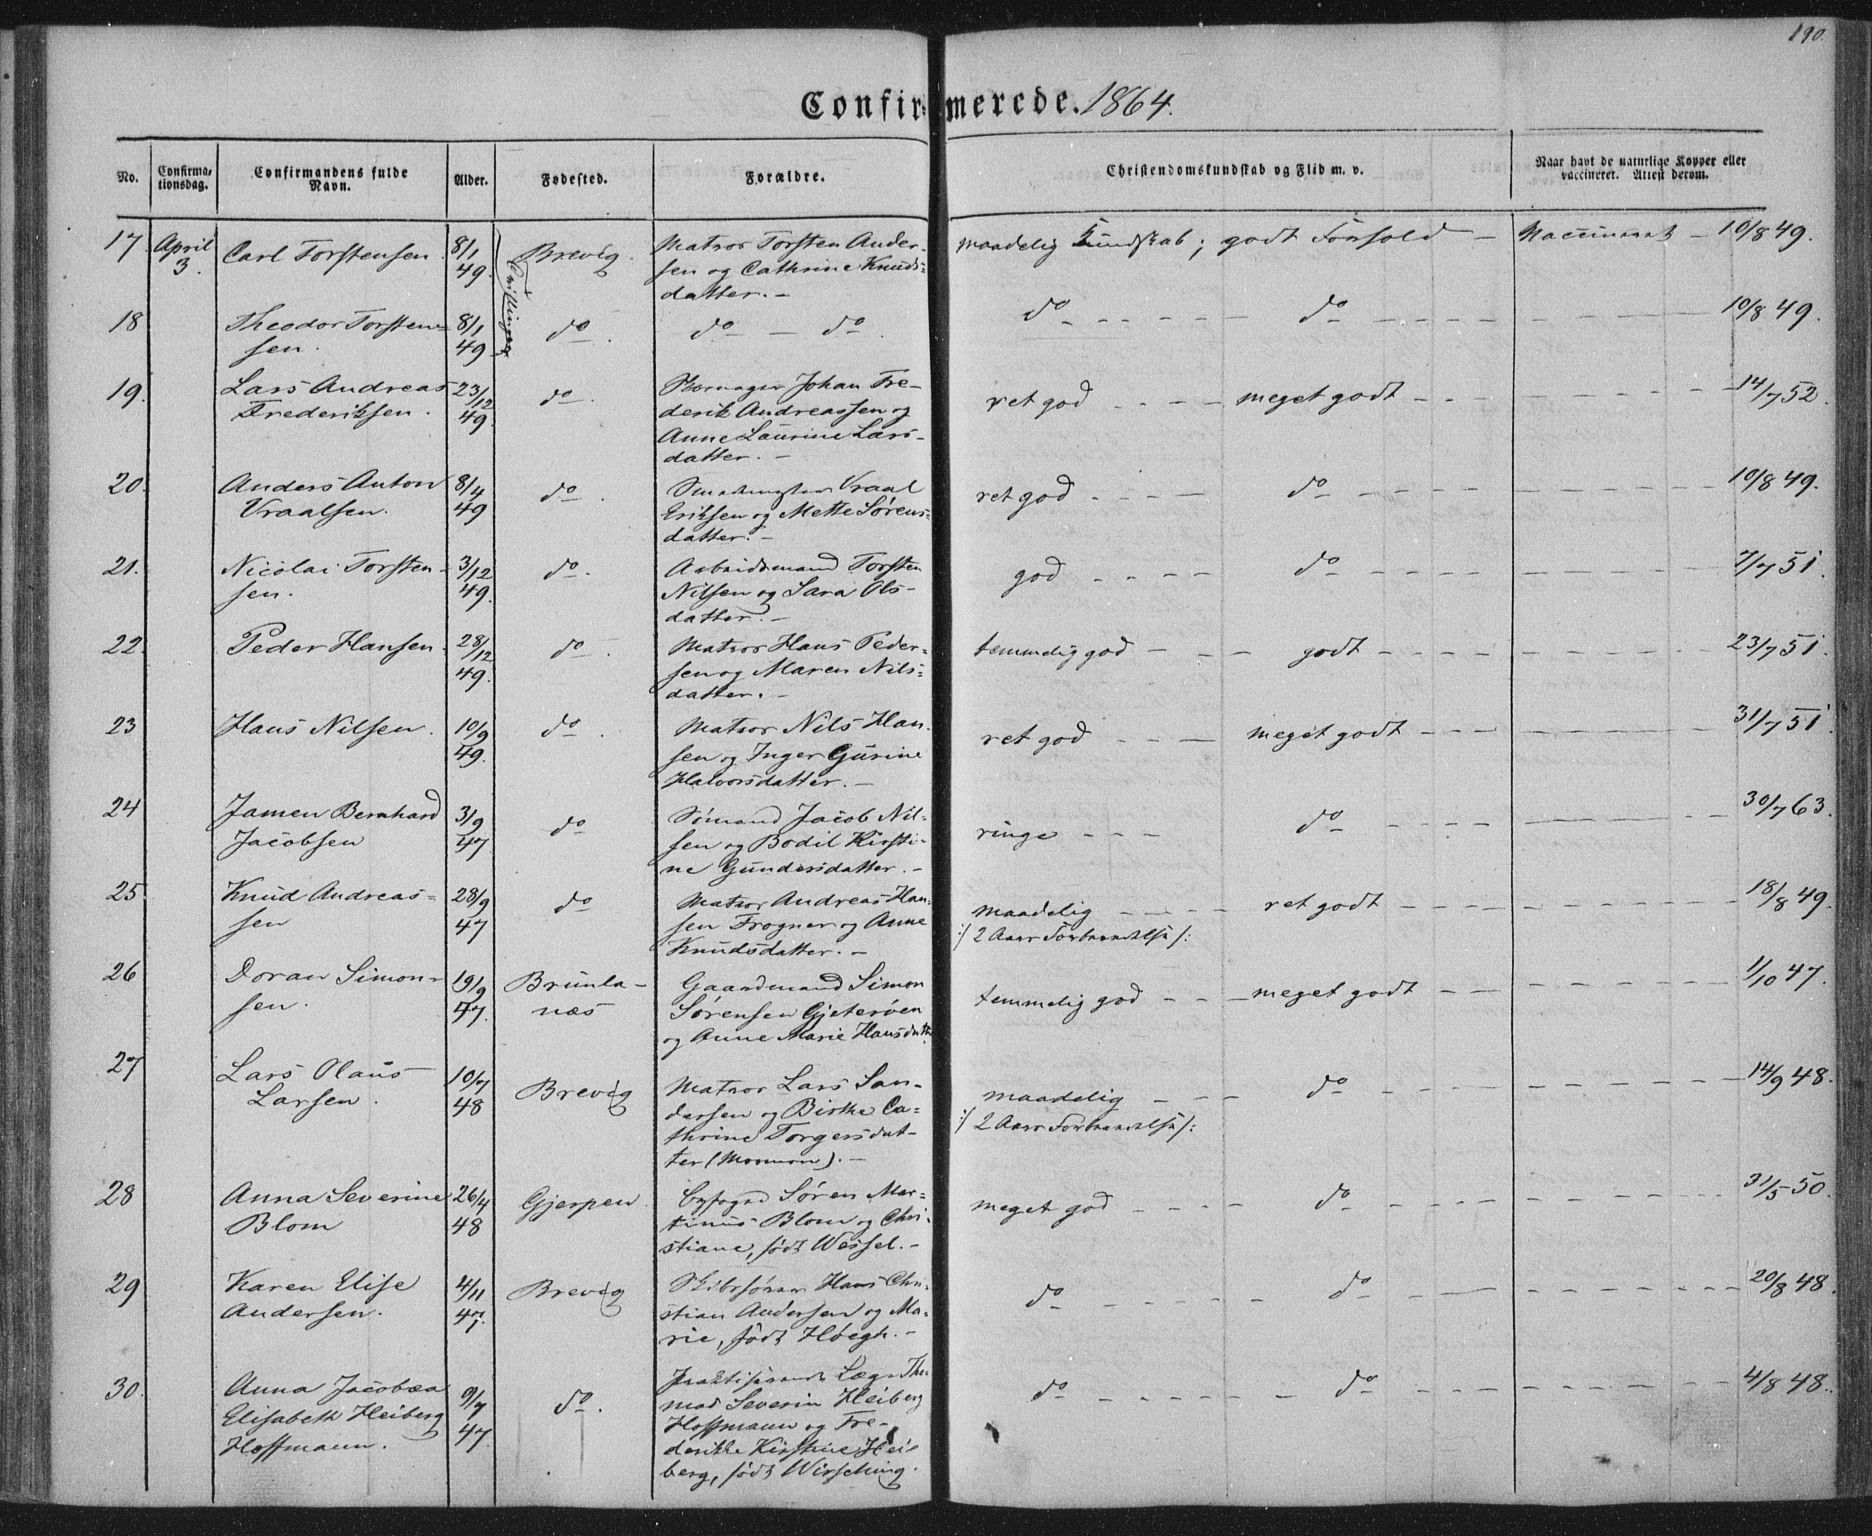 190.
Confirmerede. 1864.
No.
Confirma-
tionsdag.
Confirmandens fulde
Navn.
Alder.
Fødested.
Forældre.
Christendomskundskab og Flid m. v.
Naar havt de naturlige Kopper eller
vaccineret. Attest derom.
17. April 3. Carl Torstensen. 8/1 49. Brevig. Matros Torsten Ander-
sen og Cathrine Knuds-
datter. –
maadelig Kundskab; godt Forhold – Vaccineret – 10/8 49.
Tvillinger
18 Theodor Torsten-
sen. 8/1 49. do. do – do.
do – do – 10/8 49.
19. Lars Andreas
Frederiksen. 23/12 49. do. Skomager Johan Fre-
derik Andreassen og
Anne Laurine Lars-
datter. –
ret god – meget godt – 14/7 52.
20. Anders Anton
Vraalsen. 8/4 49 do. Vraal
Eriksen og Mette Sørens-
datter. –
ret god – do – 10/8 49.
21. Nicolai Torsten-
sen. 3/12 49. do. Arbeidsmand Torsten
Nilsen og Sara Ols-
datter. –
god – do – 7/7 51.
22. Peder Hansen. 28/12 49. do. Matros Hans Peder-
sen og Maren Nils-
datter. –
temmelig god – godt – 23/7 51.
23 Hans Nilsen. 10/9 49. do. Matros Nils Han-
sen og Inger Gurine
Halvorsdatter. –
ret god – meget godt – 31/7 51.
24 Jamen Bernhard
Jacobsen 3/9 47 do Sømand Jacob Nil-
sen og Bodil Kirsti-
ne Gundersdatter. –
ringe – do – 30/7 63.
25 Knud Andreas-
sen 28/9 47 do Matros Andreas Han-
sen Frogner og Anne
Knudsdatter. –
maadelig – ret godt – 18/8 49.
:/ 2 Aars Forberedelse /:
26 Doran Simon-
sen. 19/9 47. Brunla-
næs Gaardmand Simon
Sørensen Gjeterøen
og Anne Marie Hansdatt.
temmelig god – meget godt – 1/10 47.
27 Lars Olaus
Larsen. 10/7 48 Brevig Matros Lars San-
dersen og Birthe Ca-
thrine Torgersdat-
ter (Mormon). –
maadelig – do – 14/9 48.
:/ 2 Aars Forberedelse /:
28 Anna Severine
Blom 26/4 48 Gjerpen. Byfoged Søren Mar-
tinus Blom og Chri-
stiane, født Wessel. –
meget god – do – 31/5 50.
29 Karen Elise
Andersen. 4/11 47. Brevig Skibsfører Hans Chri-
stian Andersen og Ma-
rie, født Høegh. –
do – do – 20/8 48.
30. Anna Jacobæa
Elisabeth Heiberg
Hoffmann. 9/7 47. do. Praktiserende Læge Tho-
mas Severin Heiberg
Hoffmann og Fre-
derikke Kirstine Hei-
berg, født Wirsching.
do – do – 4/8 48.